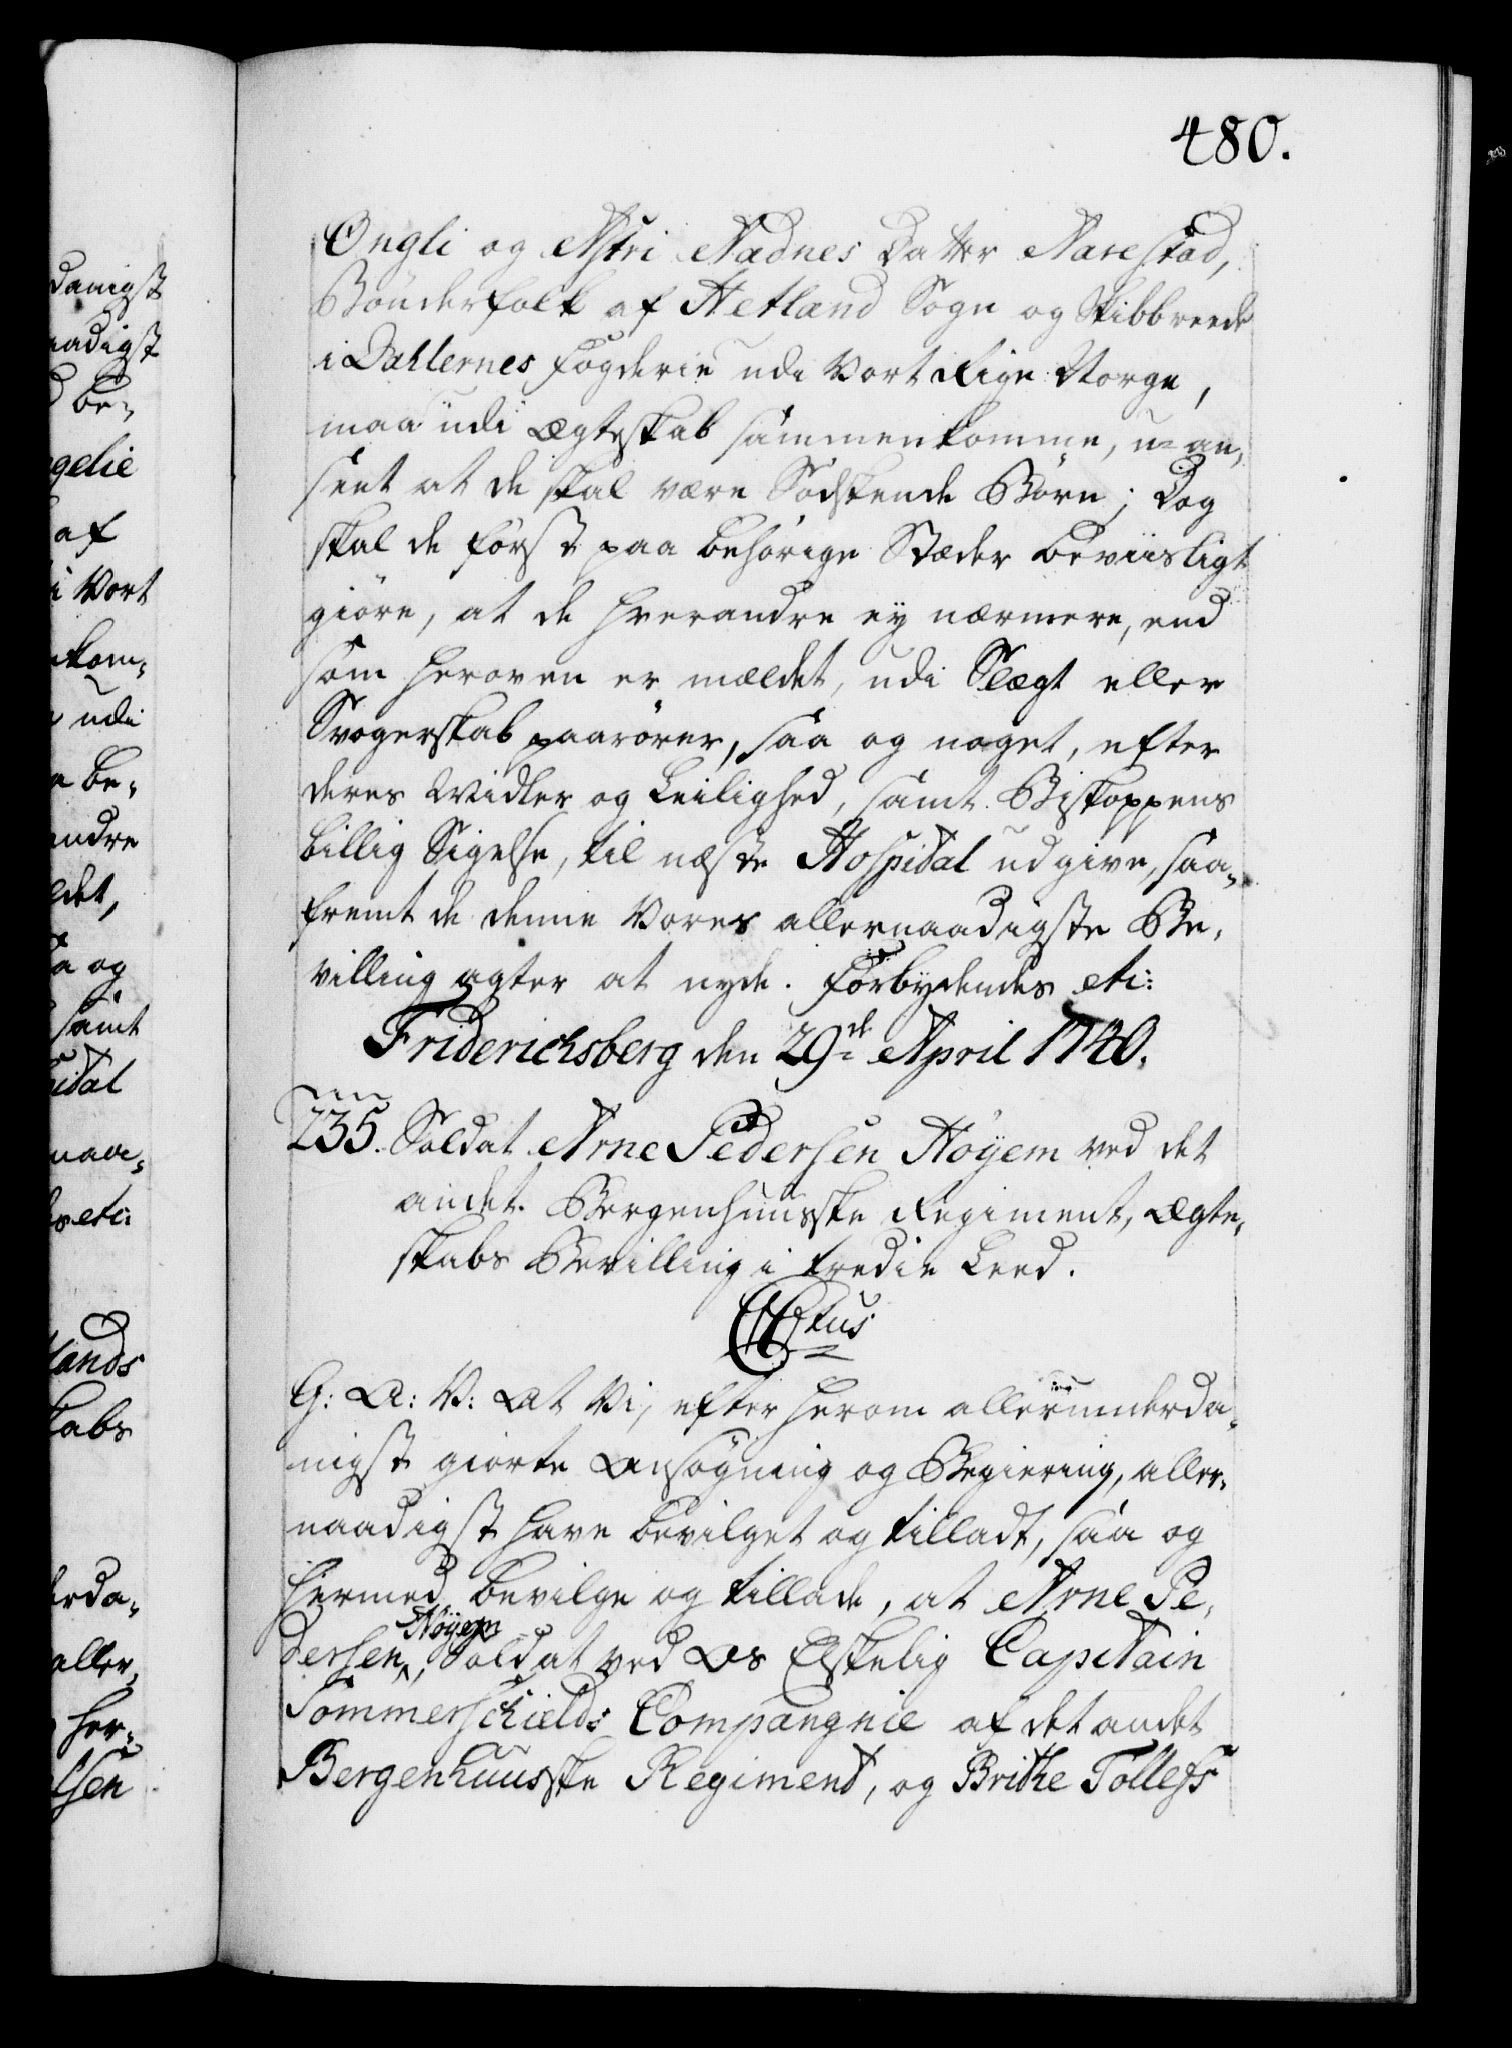 480.
Ongli og Astri Aadnes Datter Narestad,
Bønderfolk af Hetland Sogn og Skibbreede
i Dahlernes Fogderie udi Vort Rige Norge,
maa udi Ægteskab sammenkomme, u-an-
seet at de skal være Sødskende Børn; Dog
skal de først paa behørige Stæder beviisligt
giøre, at de hverandre ey nærmere, end
som heroven er mældet, udi Slægt eller
Svogerskab paarører, saa og noget, efter
deres Midler og Leilighed, samt Biskoppens
billig Sigelse, til næste Hospital udgive, saa-
fremt de denne Vores allernaadigste Be-
villing agter at nyde. Forbydendes etc:
Friderichsberg den 29de April 1740.
235. Soldat Arne Pedersen Høyem ved det
andet Bergenhuusske Regiment, Ægte-
skabs Bevilling i tredie Leed.
CCtus
G: A: V: At Vi, efter herom allerunderda-
nigst giorte Ansøgning og Begiering, aller-
naadigst have bevilget og tilladt, saa og
hermed bevilge og tillade, at Arne Pe-
dersen Høyem, Soldat ved Os Elskelig Capitain
Sommerschields Compangnie af det andet
Bergenhuusske Regiment, og Brithe Tollefs
danigst
aadigst
be-
gelie
af
i Vort
nkom-
udi
be-
andre
ldet,
a og
samt
pidal
naa-
es etc:
lands
kabs
erda-
aller-
her-
lsen